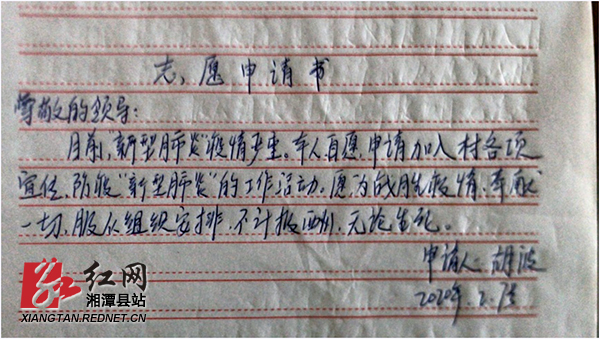 志愿申请书
尊敬的领导：
目前，"新型肺炎"疫情严重。本人自愿申请加入村各项
宣传、防疫"新型肺炎"的工作活动，愿为战胜疫情，奉献
一切，服从组织安排，不计报酬，无论生死。
申请人：胡波
2020年2.
红网
湘潭县站
XIANGTAN.REDNET.CN